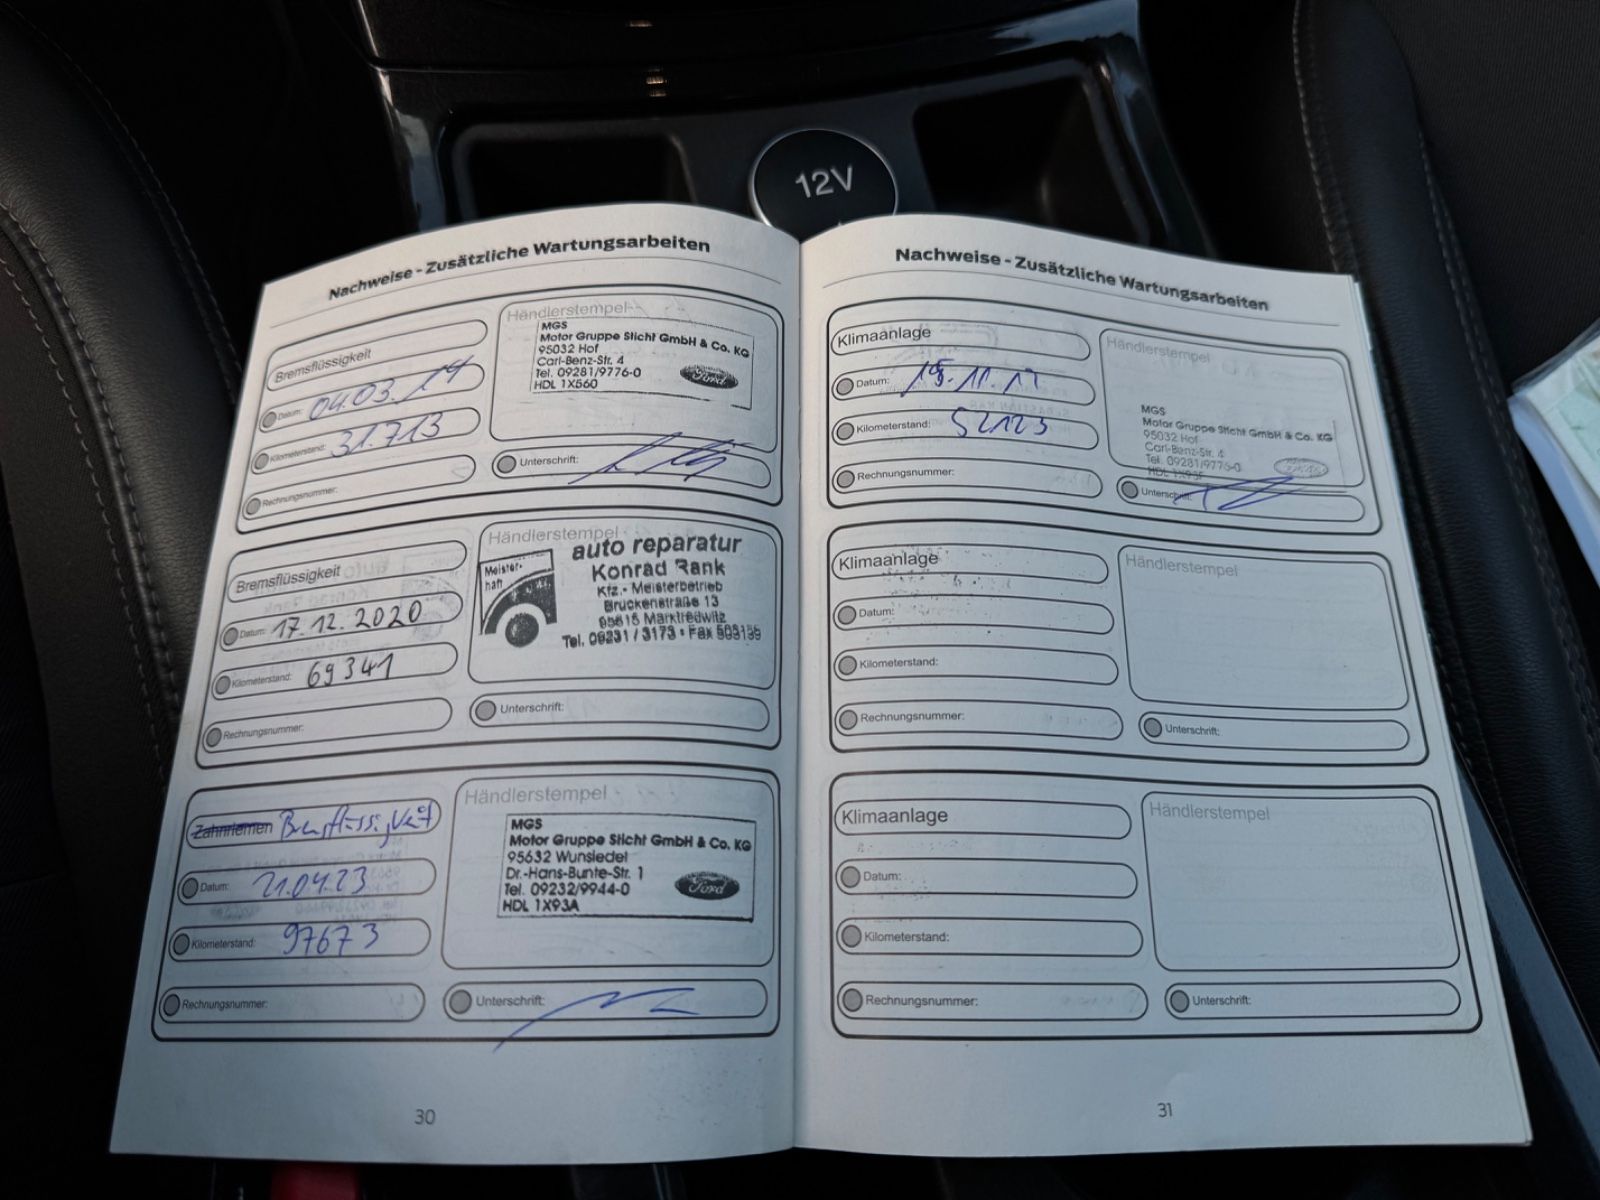 12V
Nachweise - Zusätzliche Wartungsarbeiten
Bremsflüssigkeit
Datum: 04.03.14
Kilometerstand: 31.713
Rechnungsnummer:
Händlerstempel
MGS
Motor Gruppe Sticht GmbH & Co. KG
95032 Hof
Carl-Benz-Str. 4
Tel. 09281/9776-0
HDL 1X560
Ford
Unterschrift:
Bremsflüssigkeit
Datum: 17.12.2020
Kilometerstand: 69341
Rechnungsnummer:
Händlerstempel
Meister-
haft
auto reparatur
Konrad Rank
Kfz.- Meisterbetrieb
Brückenstraße 13
95615 Marktredwitz
Tel. 09231 / 3173 • Fax
Unterschrift:
Zahnriemen Bremsflüssigkeit
Datum: 21.04.23
Kilometerstand: 97673
Rechnungsnummer:
Händlerstempel
MGS
Motor Gruppe Sticht GmbH & Co. KG
95632 Wunsiedel
Dr.-Hans-Bunte-Str. 1
Tel. 09232/9944-0
HDL 1X93A
Ford
Unterschrift:
30
Nachweise - Zusätzliche Wartungsarbeiten
Klimaanlage
Datum:
Kilometerstand: 52123
Rechnungsnummer:
Händlerstempel
MGS
Motor Gruppe Sticht GmbH & Co. KG
95032 Hof
Carl-Benz-Str. 4
Tel. 09281/9776-0
Unterschrift:
Klimaanlage
Datum:
Kilometerstand:
Rechnungsnummer:
Händlerstempel
Unterschrift:
Klimaanlage
Datum:
Kilometerstand:
Rechnungsnummer:
Händlerstempel
Unterschrift:
31